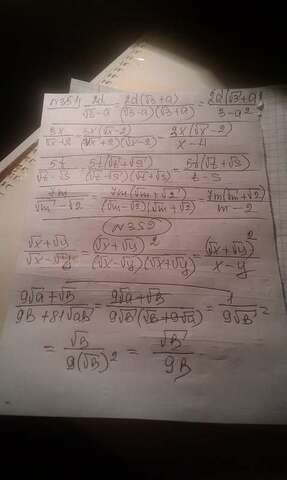 N351) 2a/(√3-a) = 2a(√3+a)/((√3-a)(√3+a)) = 2a(√3+a)/(3-a²)
3x/(√x+2) = 3x(√x-2)/((√x+2)(√x-2)) = 3x(√x-2)/(x-4)
5t/(√t-√3) = 5t(√t+√3)/((√t-√3)(√t+√3)) = 5t(√t+√3)/(t-3)
7m/(√m-√2) = 7m(√m+√2)/((√m-√2)(√m+√2)) = 7m(√m+√2)/(m-2)
N352
(√x+√y)/(√x-√y) = (√x+√y)²/((√x-√y)(√x+√y)) = (√x+√y)²/(x-y)
(9√a+√B)/(9B+81√aB) = (9√a+√B)/(9√B(√B+9√a)) = 1/(9√B)
= √B/(9(√B)²) = √B/(9B)